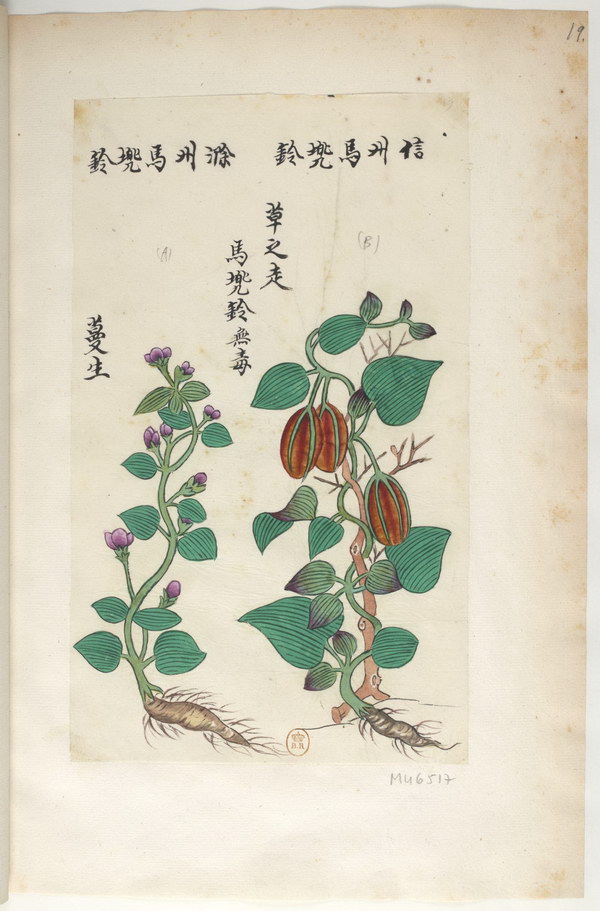 19.
信州馬兜鈴
滁州馬兜鈴
草之走
馬兜鈴無毒
蔓生
(A)
(B)
B.R.
MU6517